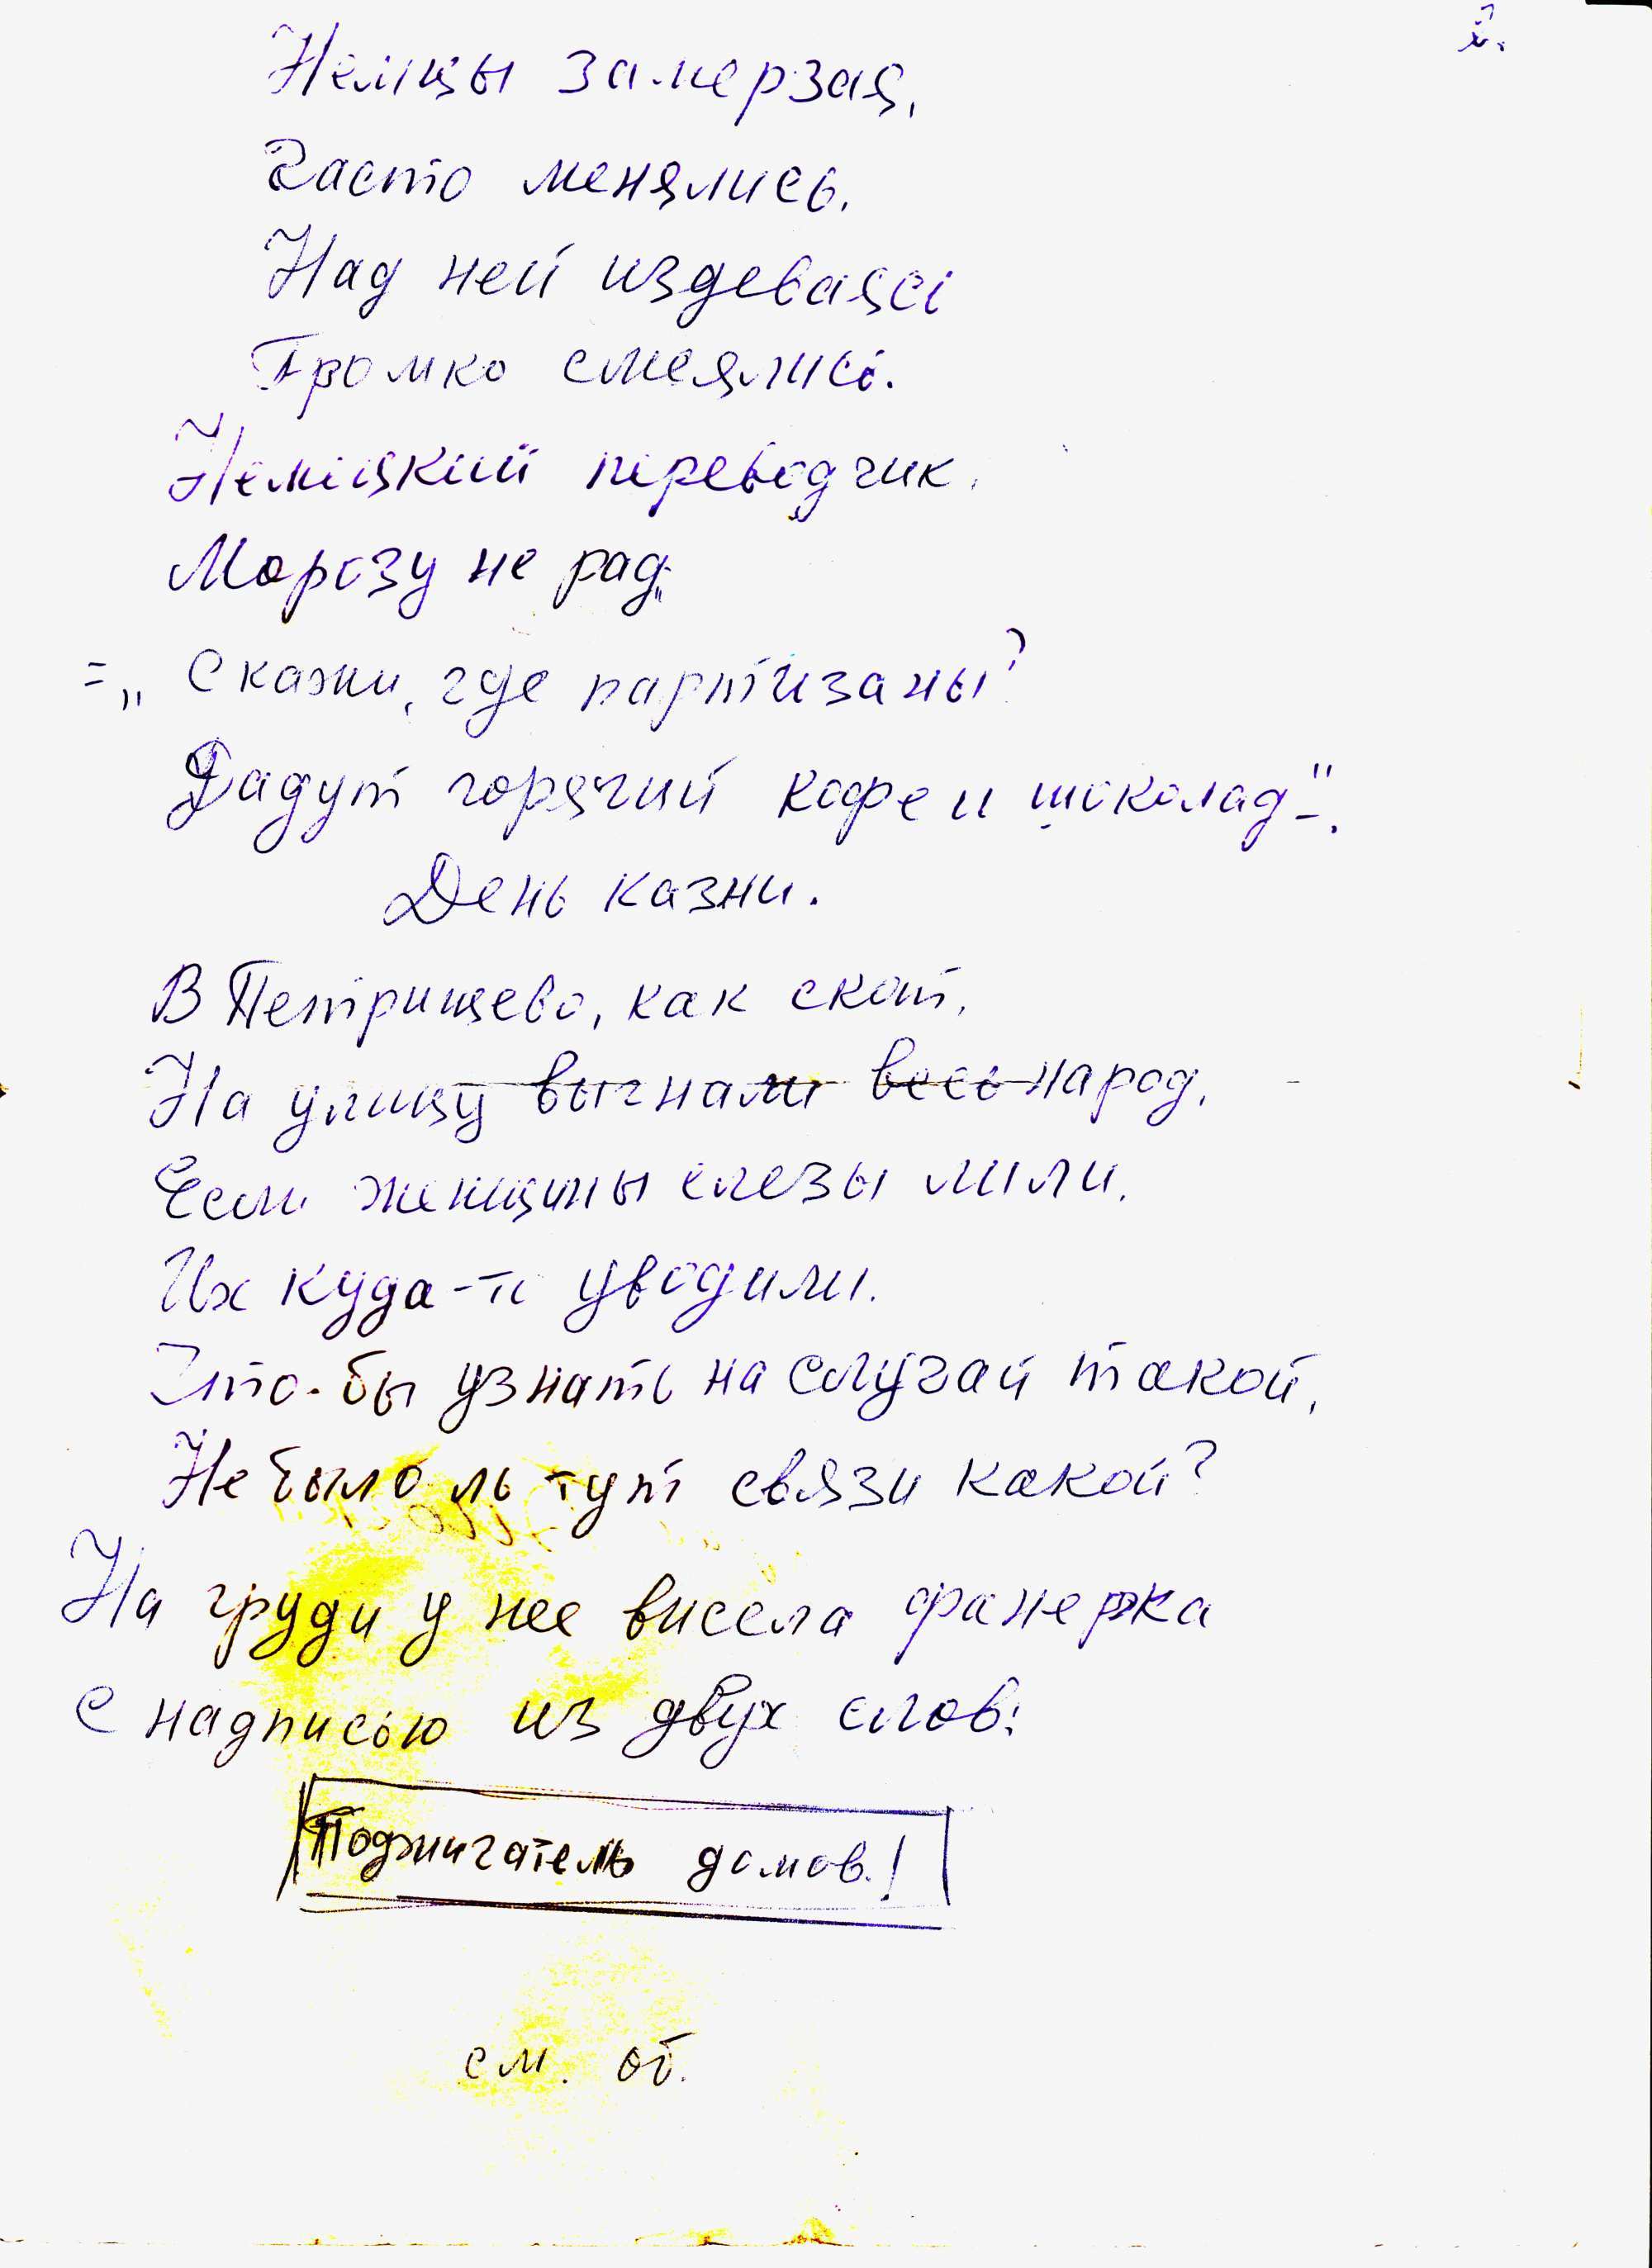 Немцы замерзая,
Часто менялись.
Над ней издеваясь
Громко смеялись.
Немецкий переводчик,
Морозу не рад:
= „Скажи, где партизаны?
Дадут горячий кофе и шоколад".
День казни.
В Петрищево, как скот,
На улицу выгнали весь народ,
Если женщины слезы лили,
Их куда-то уводили.
Что-бы узнать на случай такой,
Не было ль тут связи какой?
На груди у нее висела фанерка
С надписью из двух слов:
Поджигатель домов!
см. об.